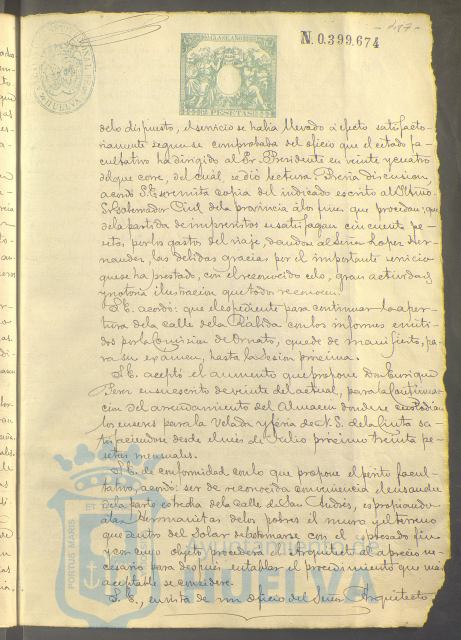 - 417 -
N. 0.399.674
CLASE
PESETAS
HUELVA
de lo dispuesto, el servicio se habia llevado á efecto satisfacto-
riamente segun se comprobaba del oficio que el citado fa-
cultativo ha dirigido al Sr. Presidente en veinte y cuatro
del que corre, del cuál se dió lectura. Prévia discusion,
acordó S.E. se remita copia del indicado escrito al
Sr. Gobernador Civil de la provincia á los fines que procedan; que
de la partida de imprevistos se satisfagan cincuenta pe-
setas, por los gastos del viaje, dandose al Señor Lopez Her-
nandez, las debidas gracias por el importante servicio
que se ha prestado, con el reconocido celo, gran actividad y
notoria ilustracion que todos reconocen.
S.E. acordó: que el espediente para continuar la aper-
tura de la calle de la Rábida con los informes emiti-
dos por la Comision de Ornato, quede de manifiesto, pa-
ra su exámen, hasta la sesion próxima.
S.E. aceptó el aumento que propone Don Enrique
Perez en su escrito de veinte del actual, para la continua-
cion del arrendamiento del Almacen donde se custodian
los enseres para la Velada y feria de N. S. de la Cinta
desde el mes de Julio próximo treinta pe-
setas mensuales.
S.E. de conformidad con lo que propone el perito facul-
tativo, acordó: ser de reconocida conveniencia el ensanche
de la parte estrecha de la calle de San Andrés, espropiando
á las Hermanitas de los pobres el muro y el terreno
que dentro del solar ha de tomarse con el espresado fin,
y con cuyo objeto procederá el Arquitecto al aprecio ne-
cesario para despues entablar el procedimiento que mas
aceptable se considere.
S.E., en vista de un oficio del Señor Arquitecto
Ayuntamiento de
HUELVA
PORTUS MARIS
ET